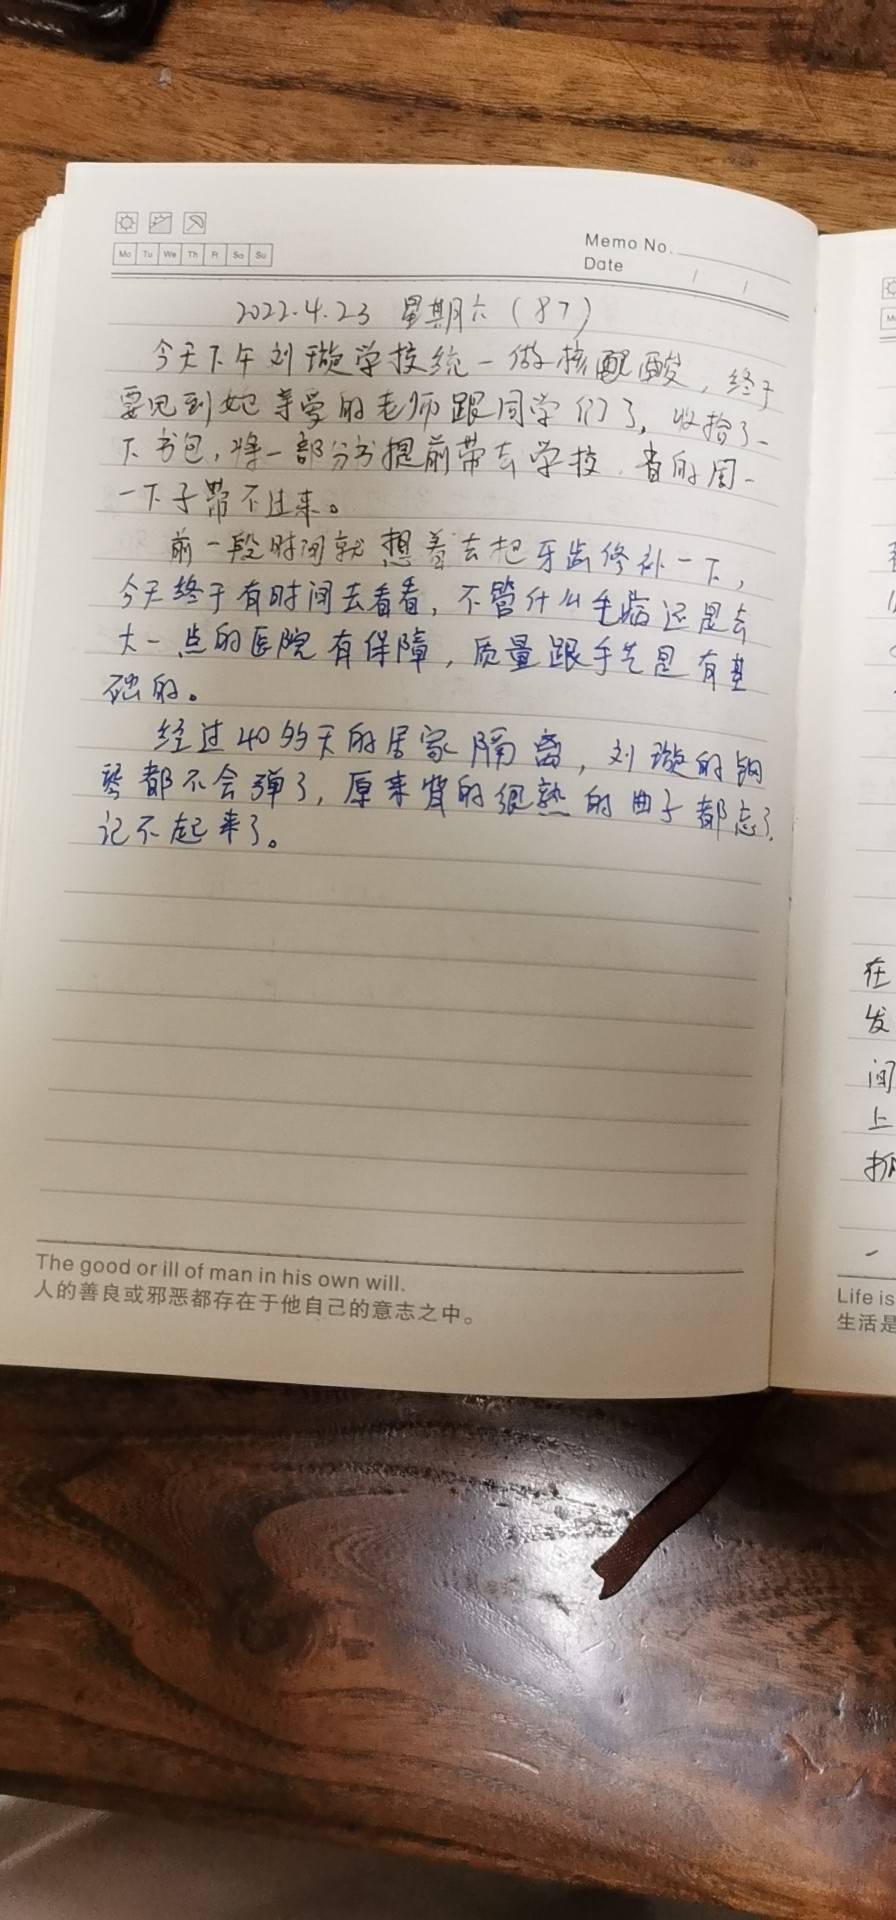 Mo Tu We Th Fr Sa Su
Memo No.
Date / /
2022.4.23 星期六(87)
今天下午刘璇学校统一做核酸,终于
要见到她亲爱的老师跟同学们了,收拾了一
下书包,将一部分书提前带去学校,省的周一
一下子带不过来。
前一段时间就想着去把牙齿修补一下,
今天终于有时间去看看,不管什么毛病还是去
大一点的医院有保障,质量跟手艺是有基
础的。
经过40多天的居家隔离,刘璇的钢
琴都不会弹了,原来背的很熟的曲子都忘了,
记不起来了。
The good or ill of man in his own will.
人的善良或邪恶都存在于他自己的意志之中。
在
发
间
上
Life is
生活是